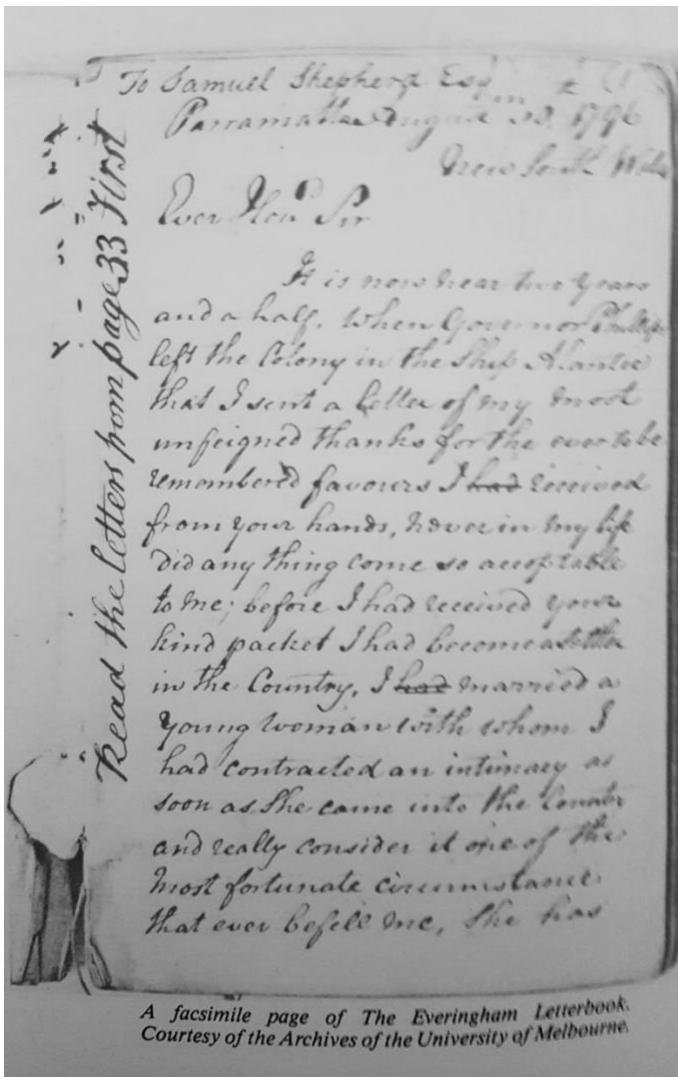 To Samuel Shepherd Esq
Parramatta August 1796
New South Wales
Ever Hond Sir
It is now near two years
and a half. When Governor Phillip
left the Colony in the Ship Atlantic
that I sent a letter of my most
unfeigned thanks for the ever to be
remembered favours I had received
from your hands, never in my life
did any thing come so acceptable
to me; before I had received your
kind packet I had become a settler
in the Country, I had married a
young woman with whom I
had contracted an intimacy as
soon as She came into the Country
and really consider it one of the
most fortunate circumstances
that ever befell me, She has
Read the letters from page 33 First
A facsimile page of The Everingham Letterbook.
Courtesy of the Archives of the University of Melbourne.